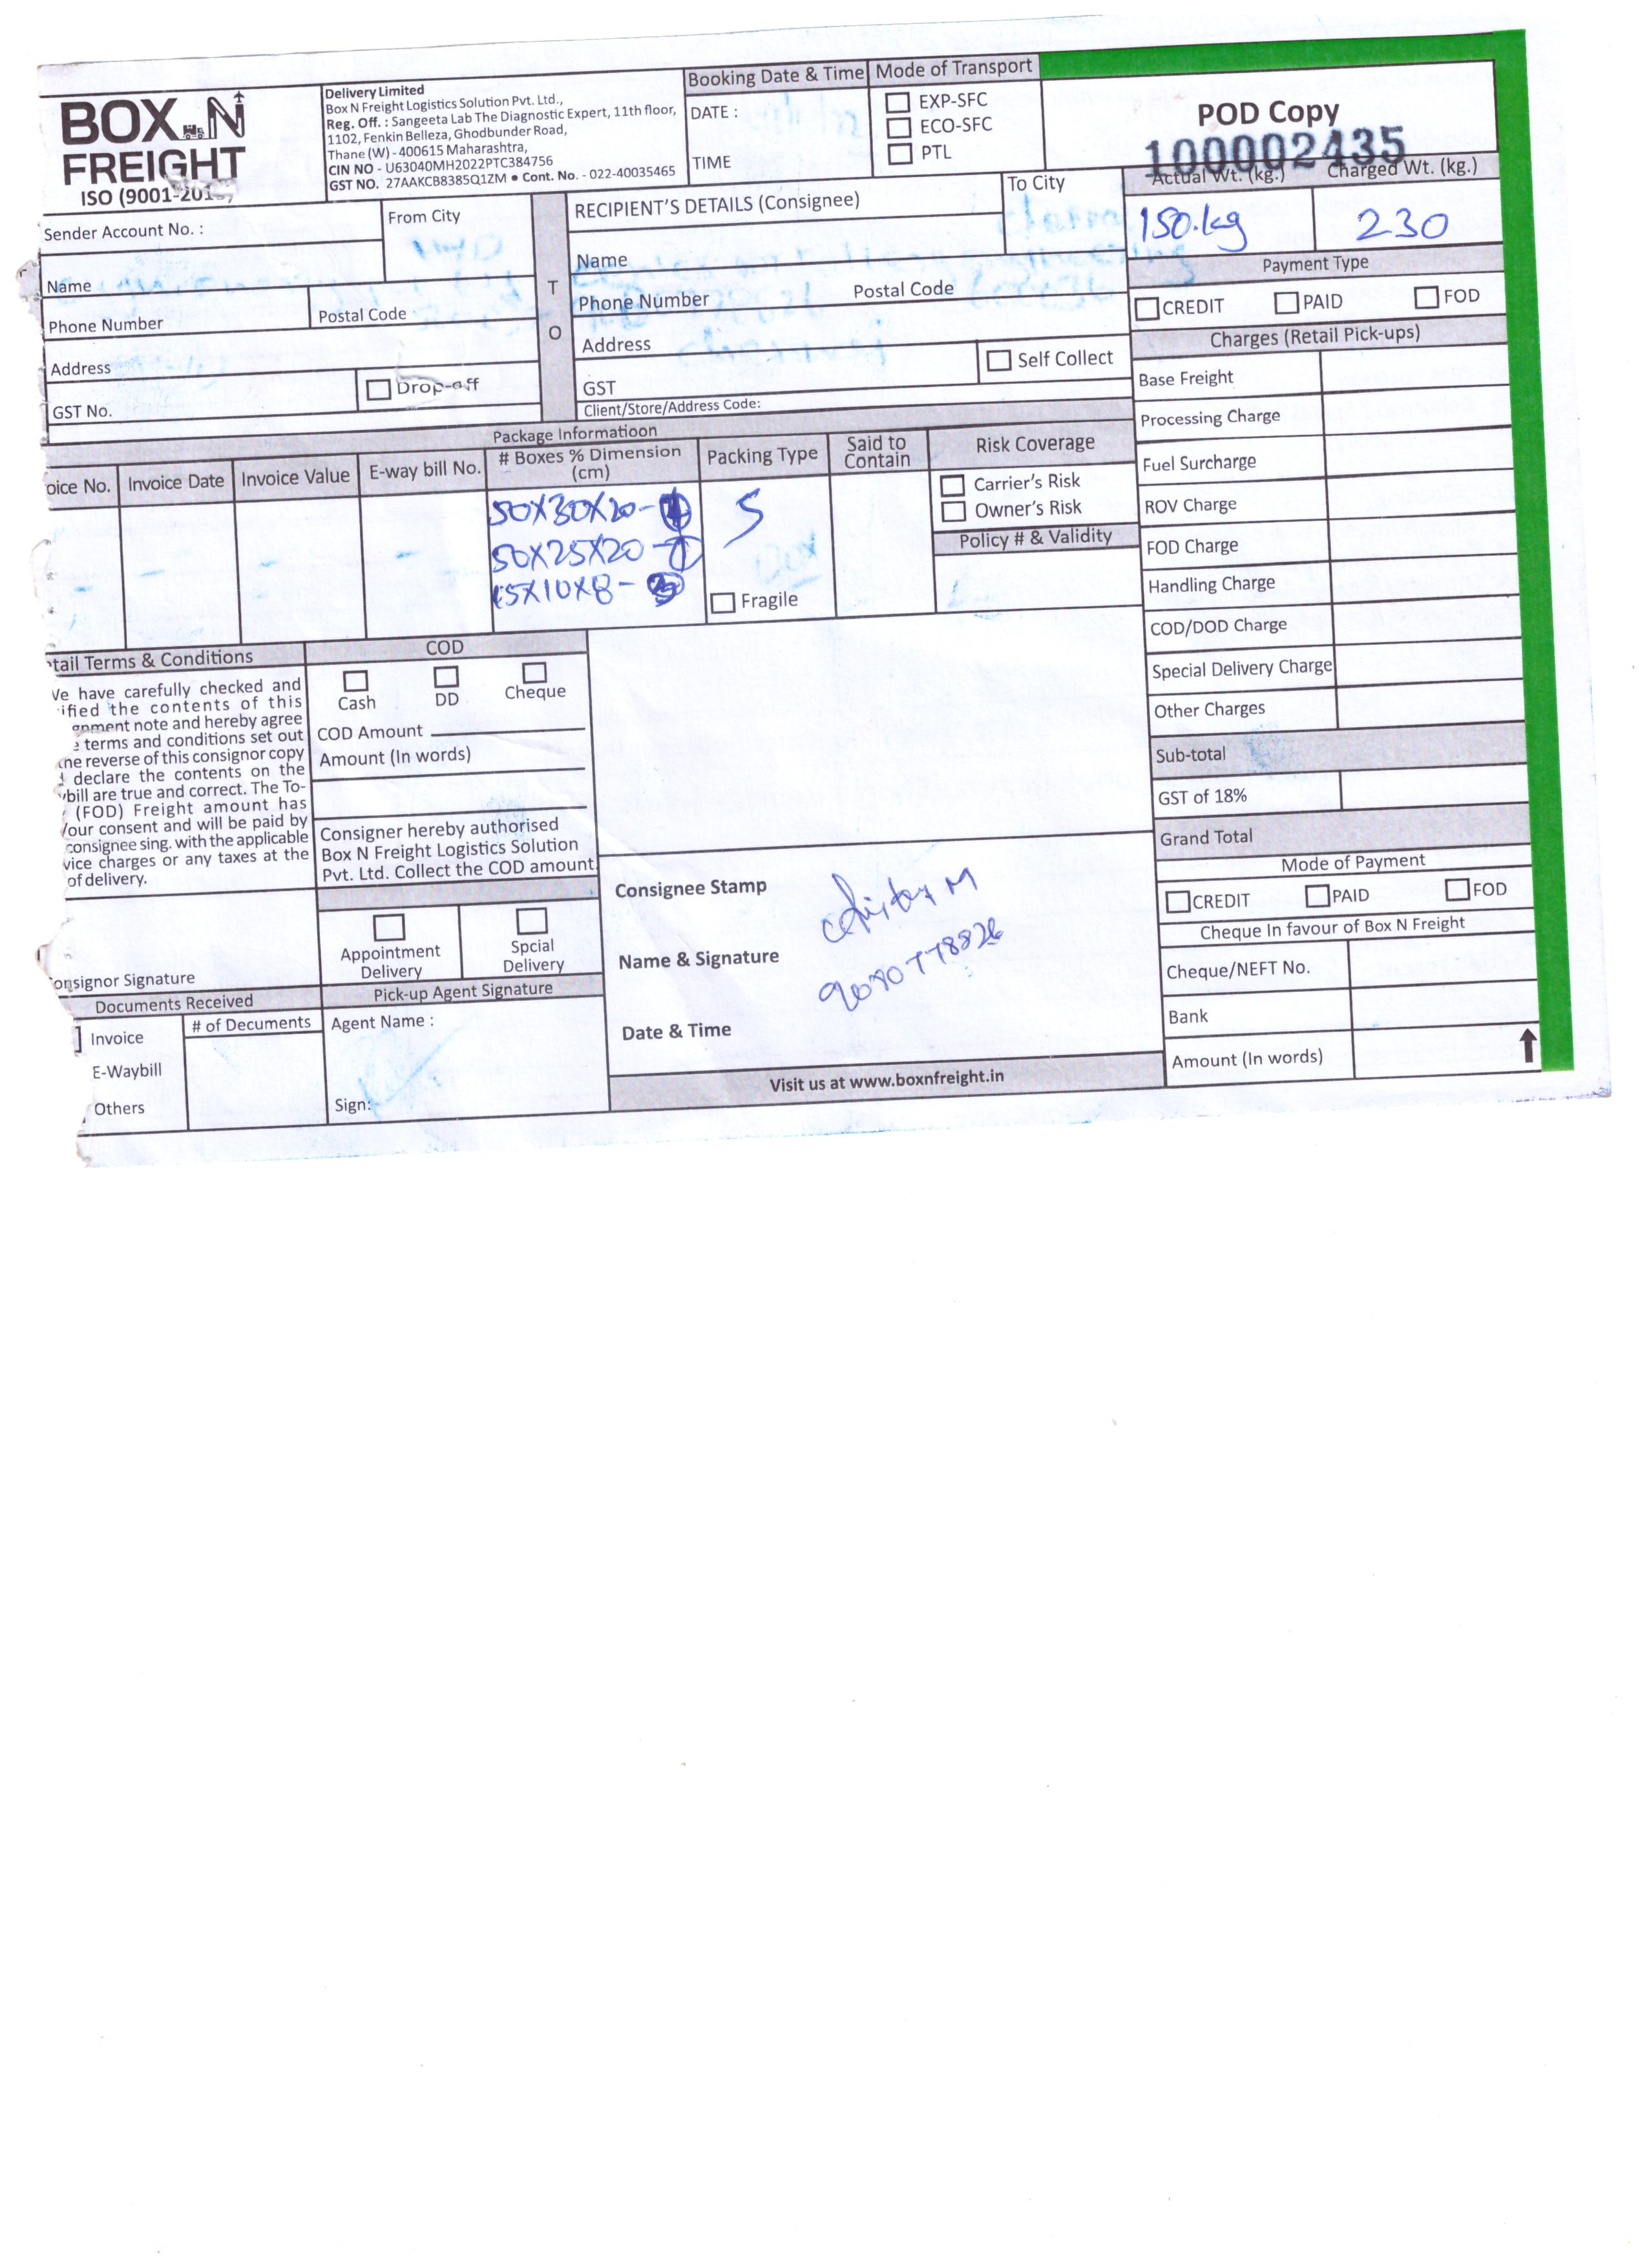 BOX N
FREIGHT
ISO (9001-201
Delivery Limited
Box N Freight Logistics Solution Pvt. Ltd.,
Reg. Off. : Sangeeta Lab The Diagnostic Expert, 11th floor,
1102, Fenkin Belleza, Ghodbunder Road,
Thane (W) - 400615 Maharashtra,
CIN NO - U63040MH2022PTC384756
GST NO. 27AAKCB8385Q1ZM • Cont. No. - 022-40035465
Booking Date & Time
DATE :
TIME
Mode of Transport
EXP-SFC
ECO-SFC
PTL
POD Copy
100002435
Sender Account No. :
From City
HYD
Name
Phone Number
Postal Code
Address
GST No.
Drop-off
T
O
RECIPIENT'S DETAILS (Consignee)
To City
Name
Phone Number
Postal Code
Address
Chennai
GST
Self Collect
Client/Store/Address Code:
Actual Wt. (kg.)
Charged Wt. (kg.)
150.kg
230
Payment Type
CREDIT
PAID
FOD
Charges (Retail Pick-ups)
Base Freight
Processing Charge
Fuel Surcharge
ROV Charge
FOD Charge
Handling Charge
COD/DOD Charge
Special Delivery Charge
Other Charges
Sub-total
GST of 18%
Grand Total
Mode of Payment
CREDIT
PAID
FOD
Cheque In favour of Box N Freight
Cheque/NEFT No.
Bank
Amount (In words)
Package Informatioon
oice No.
Invoice Date
Invoice Value
E-way bill No.
# Boxes % Dimension
(cm)
Packing Type
Said to
Contain
Risk Coverage
50X30X20-
50X25X20-1
5X10X8-
5
Box
Fragile
Carrier's Risk
Owner's Risk
Policy # & Validity
tail Terms & Conditions
Ve have carefully checked and
ified the contents of this
gnment note and hereby agree
e terms and conditions set out
the reverse of this consignor copy
declare the contents on the
ybill are true and correct. The To-
(FOD) Freight amount has
your consent and will be paid by
consignee sing. with the applicable
vice charges or any taxes at the
of delivery.
onsignor Signature
COD
Cash
DD
Cheque
COD Amount
Amount (In words)
Consigner hereby authorised
Box N Freight Logistics Solution
Pvt. Ltd. Collect the COD amount
Appointment
Delivery
Spcial
Delivery
Documents Received
Invoice
E-Waybill
Others
# of Decuments
Pick-up Agent Signature
Agent Name :
Sign:
Consignee Stamp
Name & Signature
Date & Time
Visit us at www.boxnfreight.in